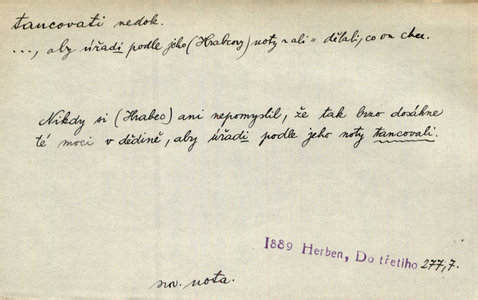 tancovati nedok.
..., aby úřadi podle jeho (Hrabcovy) noty ~ali = dělali, co on chce.
Nikdy si (Hrabec) ani nepomyslil, že tak brzo dosáhne
té moci v dědině, aby úřadi podle jeho noty tancovali.
1889 Herben, Do třetího 277,7.
srov. nota.